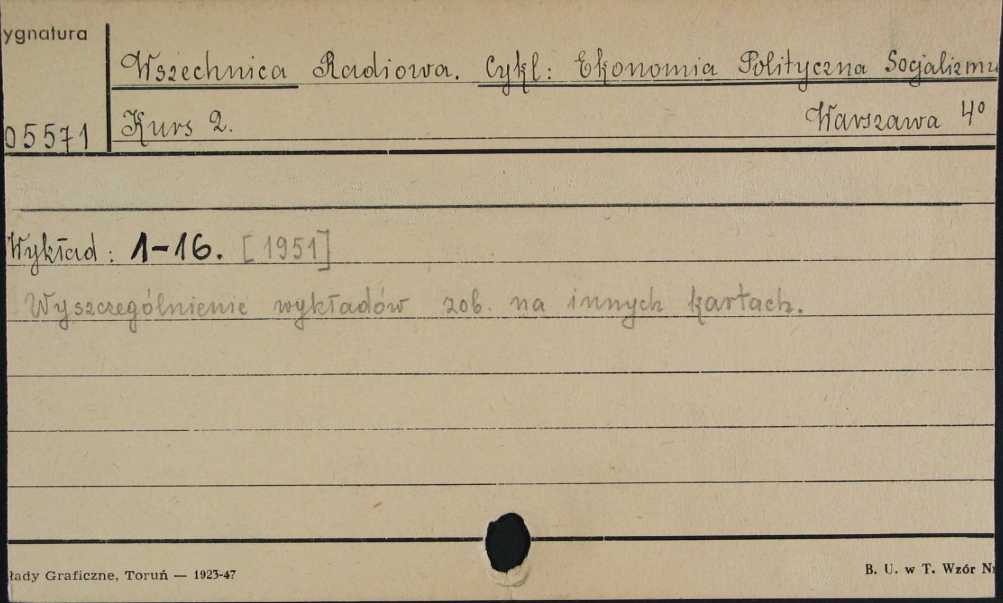 ygnatura
Wszechnica Radiowa. Cykl: Ekonomia Polityczna Socjalizmu
05571 Kurs 2. Warszawa 4°
Wykład: 1-16. [1951]
Wyszczególnienie wykładów zob. na innych kartach.
łady Graficzne, Toruń — 1923-47 B. U. w T. Wzór Nr